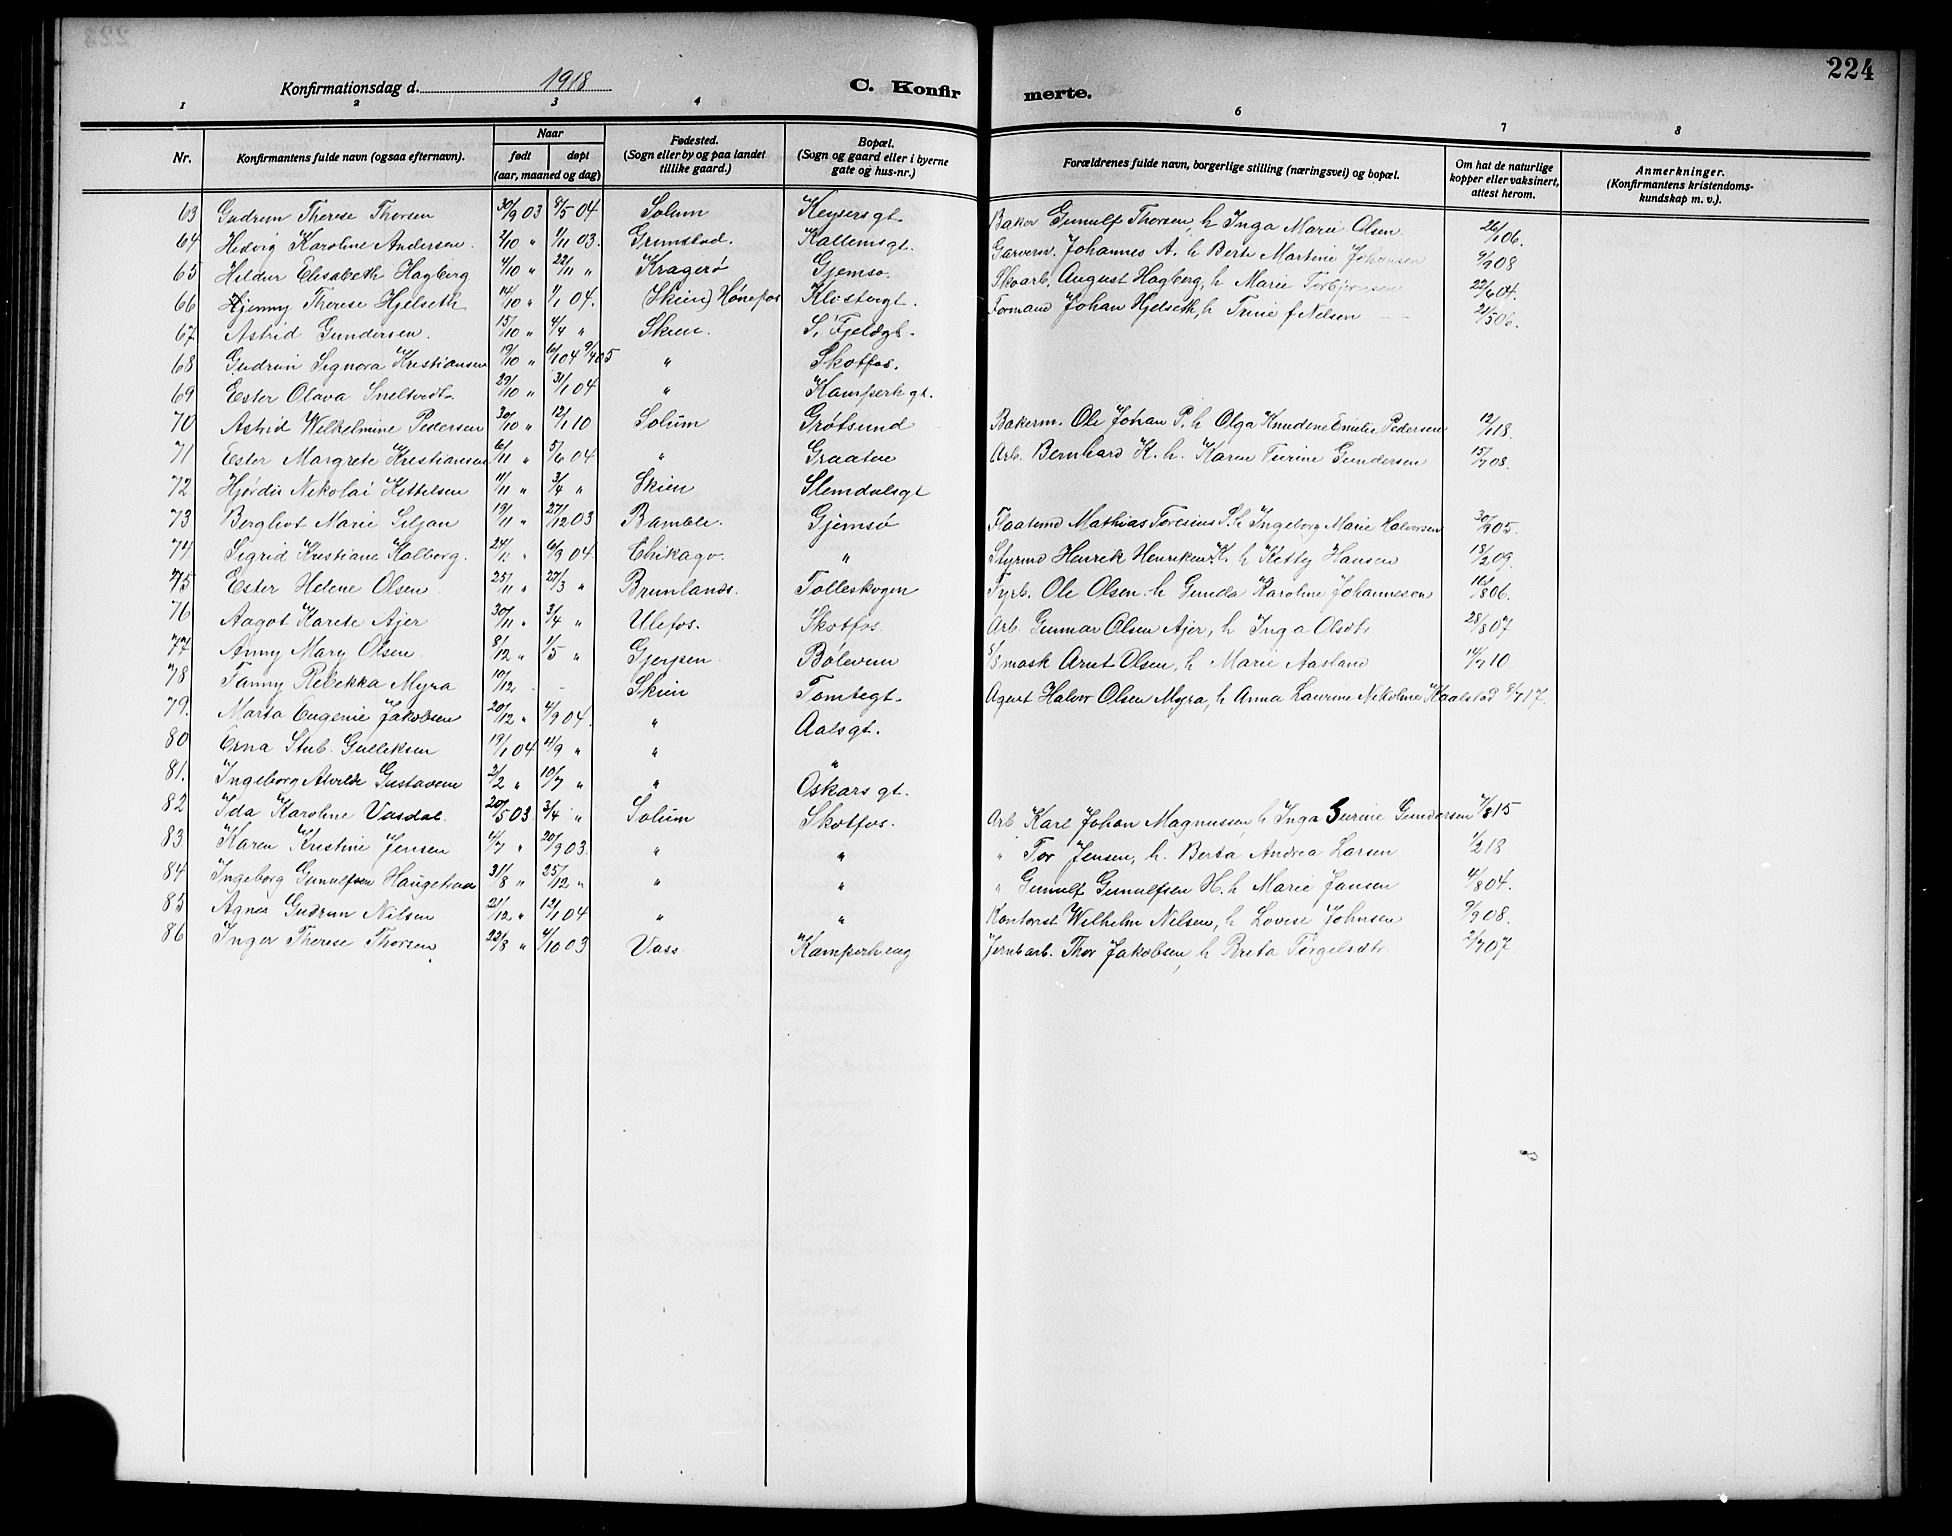 224
Konfirmationsdag d. 1918
C. Konfirmerte.
1 2 3 4 6 7 8
Nr. Konfirmantens fulde navn (ogsaa efternavn). Naar født døpt (aar, maaned og dag) Fødested. (Sogn eller by og paa landet tillike gaard.) Bopæl. (Sogn og gaard eller i byerne gate og hus-nr.) Forældrenes fulde navn, borgerlige stilling (næringsvei) og bopæl. Om hat de naturlige kopper eller vaksinert, attest herom. Anmerkninger. (Konfirmantens kristendomskundskap m. v.).
63 Gudrun Therese Thorsen 30/9 03 8/5 04 Solum Keysersgt. Baker Gunulf Thorsen, h Inga Marie Olsen 26/1 06.
64 Hedvig Karoline Andersen. 2/10 " 1/11 03. Grimstad. Kallemsgt. Garvern. Johannes A. h Berte Martine Johansen 9/9 08
65 Heldur Elisabeth Hagberg 4/10 " 22/11 " Kragerø Gjemsø. Skoarb. August Hagberg, h Marie Torbjørnsen 22/6 04.
66 Hjenny Therese Hjelseth 14/10 " 1/1 04. (Skien) Hønefos Klostergt. Formand Johan Hjelseth, h Trine f Nelsen 21/5 06.
67 Astrid Gundersen. 15/10 " 4/4 " Skien. S. Fjeldgt.
68 Gudrun Signora Kristiansen 19/10 " 6/1 04 9/4 05 " Skotfos.
69 Ester Olava Sneltvedt 29/10 " 31/1 04. " Kamperhgt.
70 Astrid Wilhelmine Pedersen 30/10 " 12/1 10 Solum Grøtsund Bakerm. Ole Johan P. h Olga Knudine Emilie Pedersen 12/1 18.
71 Ester Margrete Kristiansen 6/11 " 5/6 04 " Graaten Arb. Bernhard K. h. Karen Turine Gundersen 15/7 08.
72 Hjørdis Nikolai Kittelsen 11/11 " 3/4 " Skien Slemdalsgt
73 Bergliot Marie Siljan 19/11 " 27/12 03 Bamble. Gjemsø Flaatemd Mathias Toresius S. h Ingeborg Marie Halvorsen 30/9 05.
74 Sigrid Kristiane Kalborg. 24/11 " 6/9 04. Chikago. " Styrmd Henrik Henriksen K. h Kitty Hansen 18/2 09.
75 Ester Helene Olsen 25/11 " 27/3 " Brunlands. Folleskogen Fyrb. Ole Olsen. h Gunda Karoline Johannesen 16/8 06.
76 Aagot Karete Ajer 30/11 " 3/4 " Ulefos. Skotfos. Arb. Gunnar Olsen Ajer, h Inga Olsdtr. 28/8 07
77 Anny Mary Olsen. 8/12 " 1/5 " Gjerpen. Bøleveien S/S mask Arnt Olsen, h Marie Aasland 14/7 10.
78 Fanny Rebekka Myra 10/12 Skien Tomtegt. Agent Halvor Olsen Myra, h Anna Laurine Nikoline Kaalstad 8/7 17.
79. Marta Eugenie Jakobsen 20/12 " 4/9 04. " Aalsgt.
80 Erna Stub. Gulliksen 19/1 04 11/9 " " "
81. Ingeborg Alvilde Gustavsen 2/2 " 10/7 " " Oskarsgt.
82 Ida Karoline Vasdal. 20/5 03. 3/4 " Solum Skotfos. Arb Karl Johan Magnussen h Inga Surine Gundersen 7/8 15
83 Karen Kristine Jensen 4/7 " 20/9 03. " " " Tor Jensen, h. Berta Andrea Larsen 1/2 18
84 Ingeborg Gunulfsen Haugetraa 31/8 " 25/12 " " " " Gunulf Gunulfsen H. h Marie Jansen 4/8 04.
85 Agnes Gudrun Nilsen 21/12 " 12/1 04 " " Kontorst Wilhelm Nilsen, h Lovise Johnsen 9/9 08.
86 Inger Therese Thorsen 23/8 " 4/10 03 Vass. Kamperhaug Jernbarb. Thor Jakobsen, h Breta Torgelsdtr. 2/7 07.